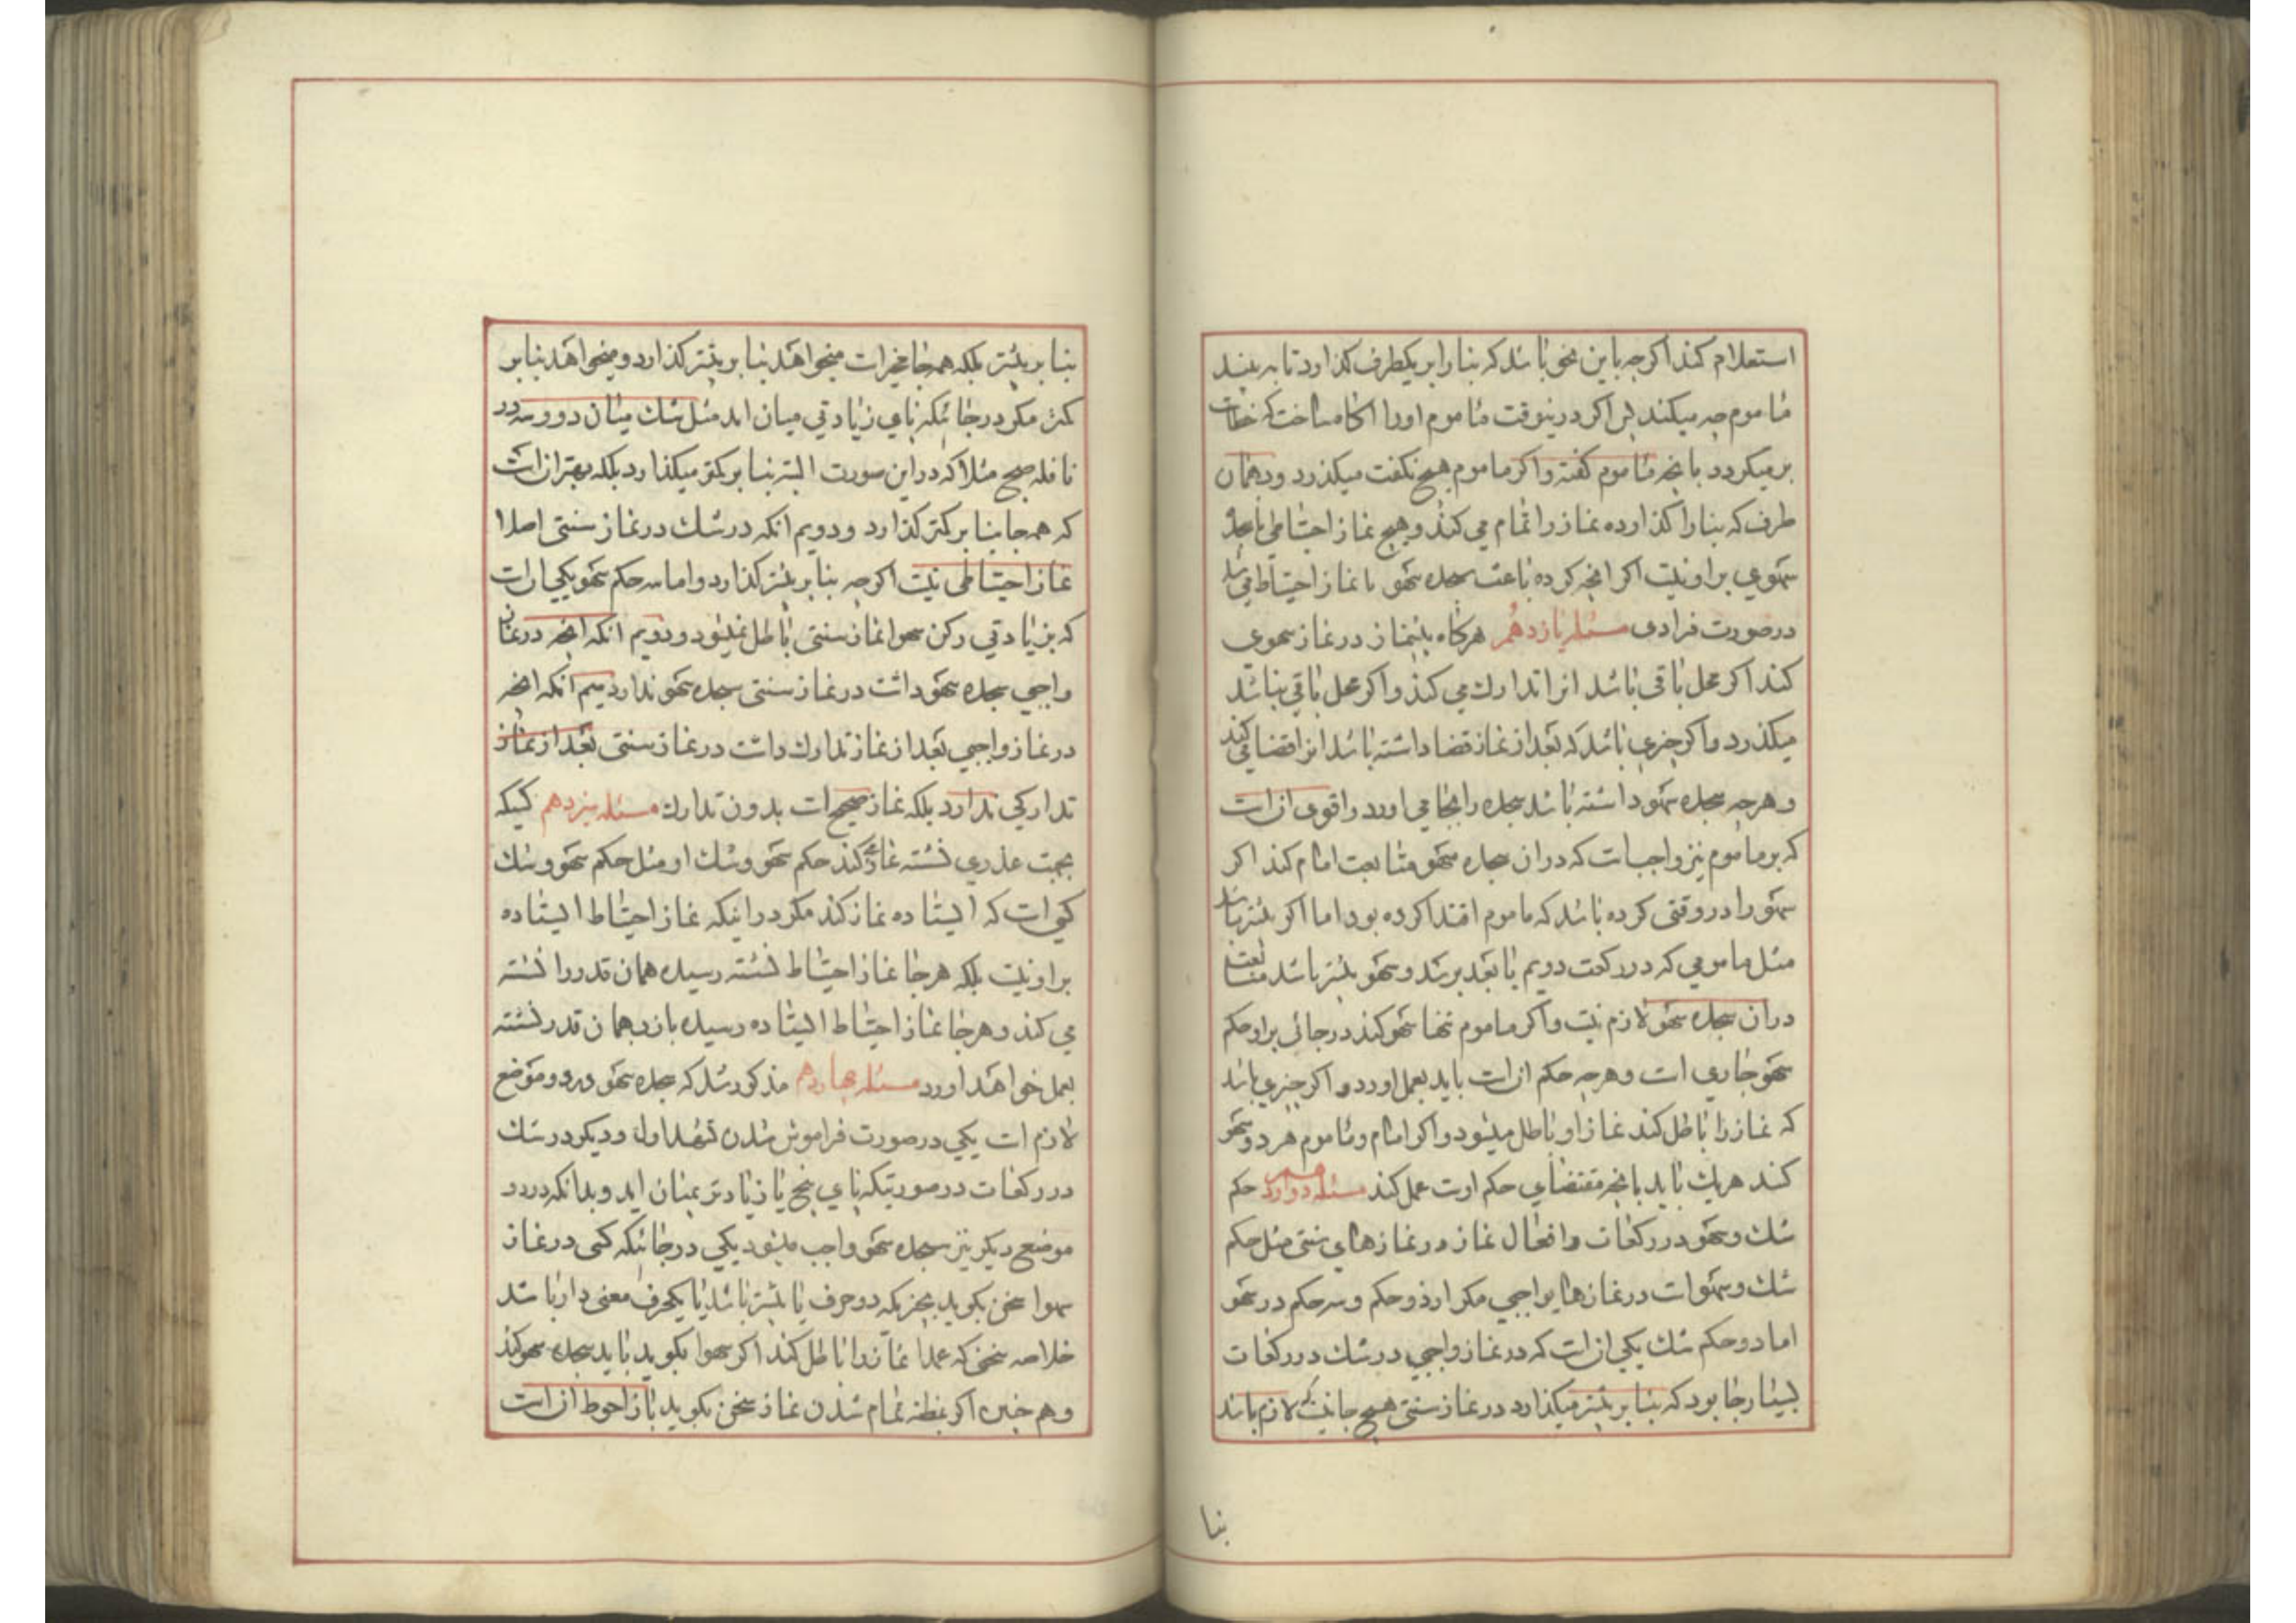 استعلام كند اكرچه باین نحو باشد كه بنا را بر یكطرف كذارد تا به بیند
ماموم چه میكند پس اكر درینوقت ماموم اورا اكاه ساخت كه خطاست
بر میكردد بانچه ماموم كفته واكر ماموم هیچ نكفت میكذرد وبرهمان
طرف كه بنارا كذارده نماز را تمام می كند وهیچ نماز احتیاطی یا سجدهٔ
سهوی بر او نیست اكر انچه كرده باعث سجده سهو یا نماز احتیاط می شد
در صورت فرادی مسئله یازدهم هركاه پیشنماز در نماز سهوی
كند اكر محل باقی باشد انرا تدارك می كند واكر محل باقی نباشد
میكذرد واكر چیزی باشد كه بعد از نماز قضا داشته باشد انرا قضا می كند
وهرچه سجده سهو داشته باشد سجده را بجا می اورد واقوی ان است
كه بر ماموم نیز واجب است كه در ان سجده سهو متابعت امام كند اكر
سهو را در وقتی كرده باشد كه ماموم اقتدا كرده بود اما اكر پیشتر باشد
مثل مامومی كه در ركعت دویم یا بعد برسد وسهو پیشتر باشد متابعت
در ان سجده سهو لازم نیست واكر ماموم تنها سهو كند در جائی بر او حكم
سهو جاری است وهرچه حكم ان است باید بعمل اورد واكر چیزی باشد
كه نماز را باطل كند نماز او باطل میشود واكر امام وماموم هر دو سهو
كند هریك باید بانچه مقتضای حكم اوست عمل كند مسئله دوازدهم حكم
شك وسهو در ركعات وافعال نماز در نمازهای سنتی مثل حكم
شك وسهو است در نمازهای واجبی مكر از دو حكم وسه حكم در سهو
اما دو حكم شك یكی ان است كه در نماز واجبی در شك در ركعات
بسیار جا بود كه بنا بر بیشتر میكذارد در نماز سنتی هیچ جا نیست كه لازم باشد
بنا
بنا بر بیشتر بلكه همه جا مخیر است میخواهد بنا بر بیشتر كذارد ومیخواهد بنا بر
كمتر مكر در جائیكه پای زیادتی میان اید مثل شك میان دو وسه در
نافله صبح مثلا كه در این صورت البته بنا بر كمتر میكذارد بلكه بهتر ان است
كه همه جا بنا بر كمتر كذارد ودویم انكه در شك در نماز سنتی اصلا
نماز احتیاطی نیست اكرچه بنا بر بیشتر كذارد واما سه حكم سهو یكی ان است
كه بزیادتی ركن سهوا نماز سنتی باطل نمیشود ودویم انكه انچه در نماز
واجبی سجده سهو داشت در نماز سنتی سجده سهو ندارد سیم انكه انچه
در نماز واجبی بعد از نماز تدارك داشت در نماز سنتی بعد از نماز
تداركی ندارد بلكه نماز صحیح است بدون تدارك مسئله سیزدهم كسیكه
بجهت عذری نشسته نماز كند حكم سهو وشك او مثل حكم سهو وشك
كسی است كه ایستاده نماز كند مكر در اینكه نماز احتیاط ایستاده
بر او نیست بلكه هرجا نماز احتیاط نشسته رسیده همان قدر را نشسته
می كند وهرجا نماز احتیاط ایستاده رسیده باز همان قدر نشسته
بعمل خواهد اورد مسئله چهاردهم مذكور شد كه سجده سهو در دو موضع
لازم است یكی در صورت فراموش شدن تشهد اول ودیكر در شك
در ركعات در صورتیكه پای پنج یا زیادتر بمیان اید وبدانكه در دو
موضع دیكر نیز سجده سهو واجب میشود یكی در جائیكه كسی در نماز
سهوا سخن بكوید بچیزیكه دو حرف یا بیشتر باشد یا یكحرف معنی دار باشد
خلاصه سخنی كه عمدا نماز را باطل كند اكر سهوا بكوید باید سجده سهو كند
وهم چنین اكر بمظنه تمام شدن نماز سخن بكوید باز احوط ان است